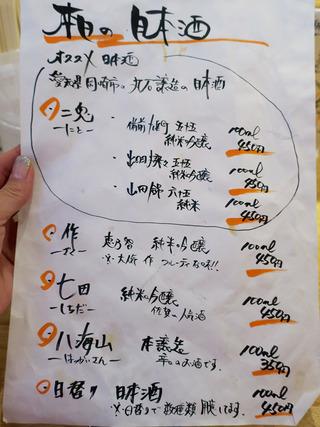 本日の日本酒
オススメ 日本酒
愛知県 岡崎市の 丸石醸造の 日本酒
二兎
ーにとー
・備前雄町 五十五
純米吟醸
100ml
450円
・出羽燦々 五十五
純米吟醸
100ml
450円
・山田錦 六十五
純米
100ml
450円
作
ーザクー
恵乃智 純米吟醸
100ml
450円
七田
ーしちだー
純米吟醸
佐賀の
100ml
450円
八海山
ーはっかいさんー
本醸造
辛口のお酒です。
100ml
350円
日替り 日本酒
※日替りで数種類
100ml
450円